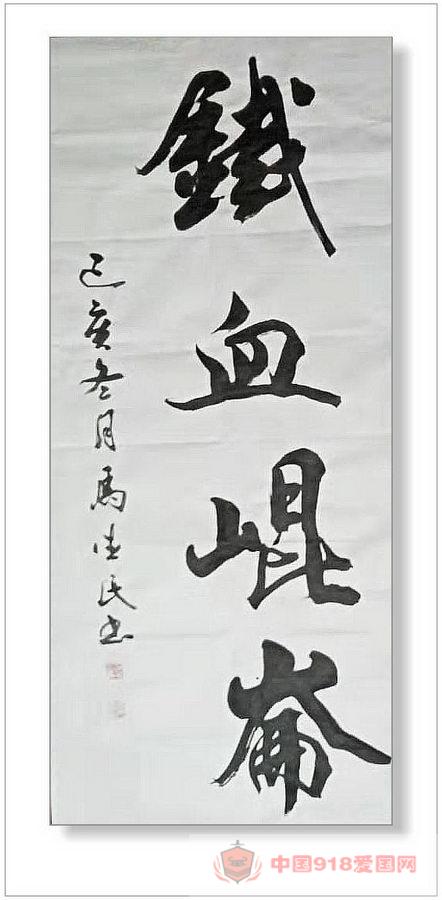 鐵血崐崙
己亥冬月馬民書
中国918爱国网